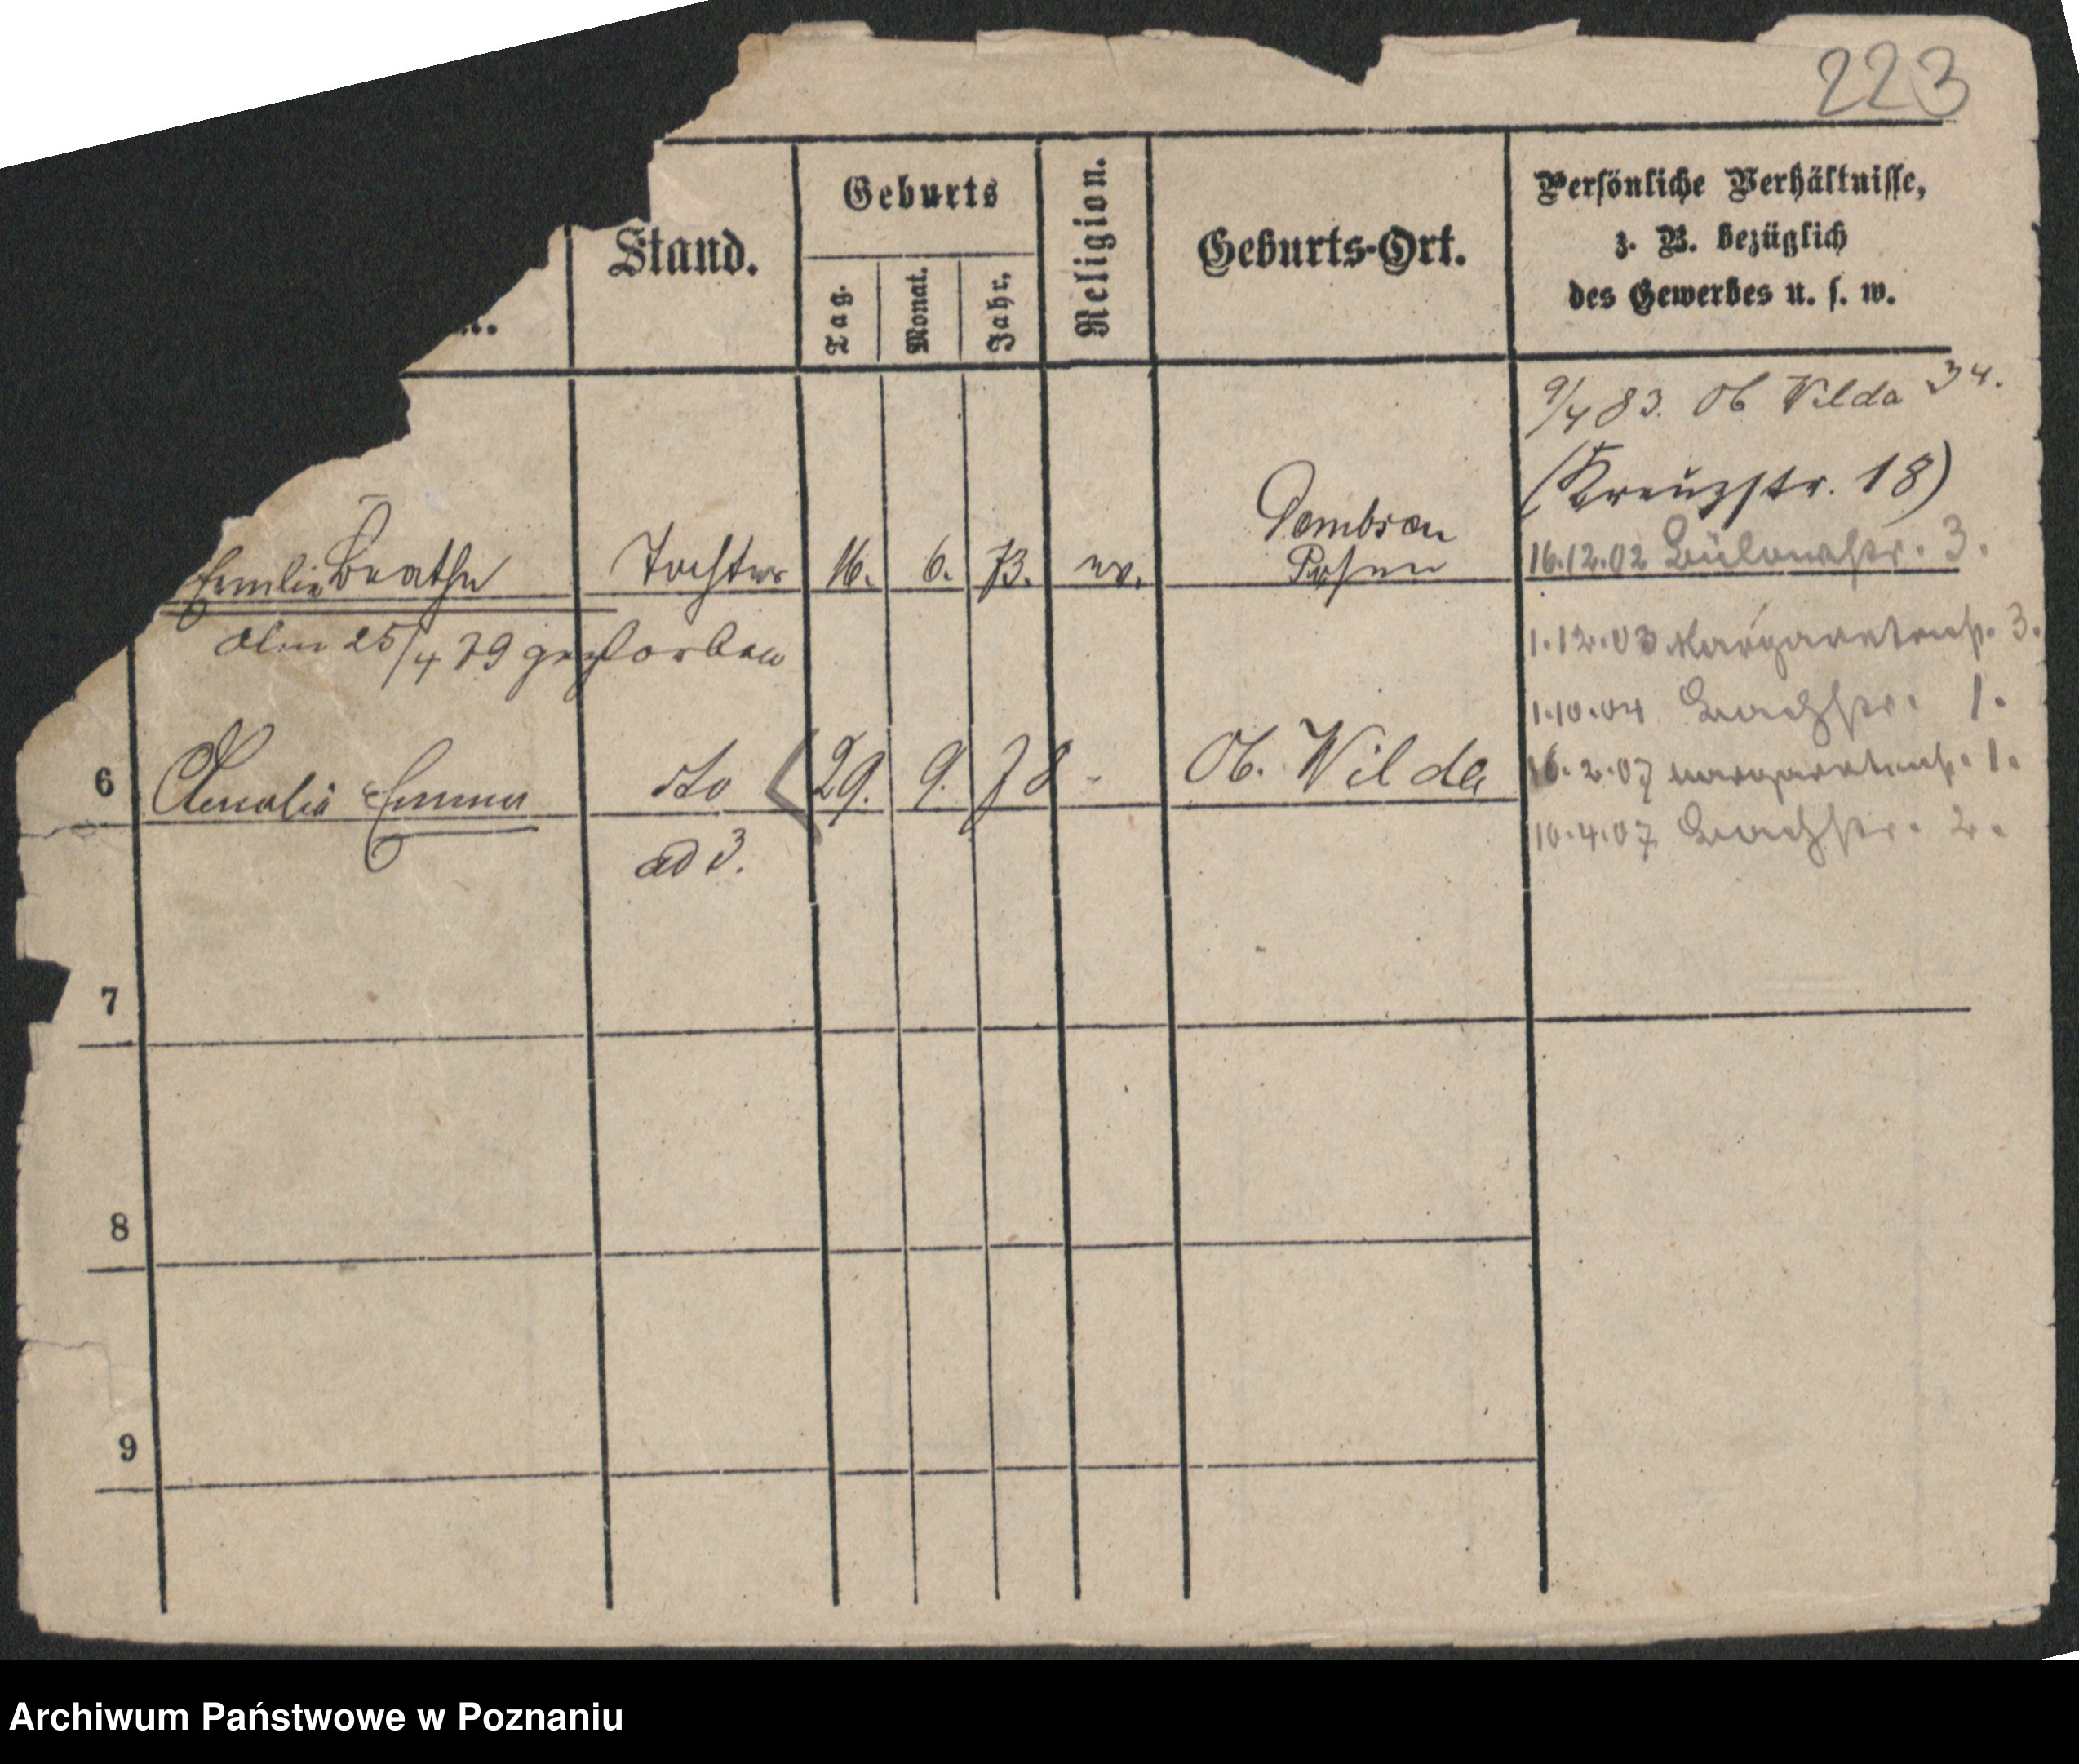 223
Stand.
Geburts
Tag.
Monat.
Jahr.
Religion.
Geburts-Ort.
Persönliche Verhältnisse,
z. B. bezüglich
des Gewerbes u. s. w.
9/4 83. Ob Wilda 34.
(Kreuzstr. 18)
Emilie Beathe Tochter 16. 6. 73. ev. Dombrow
Posen
16.12.02 Bülowstr. 3.
Am 25/4 79 gestorben
1.12.03 Margaretenstr. 3.
1.10.04 Bachstr. 1.
6 Amalie Emma dto 29. 9. 78 - Ob. Wilda
16.2.07 Margaretenstr. 1.
ad 3.
10.4.07 Bachstr. 2.
7
8
9
Archiwum Państwowe w Poznaniu